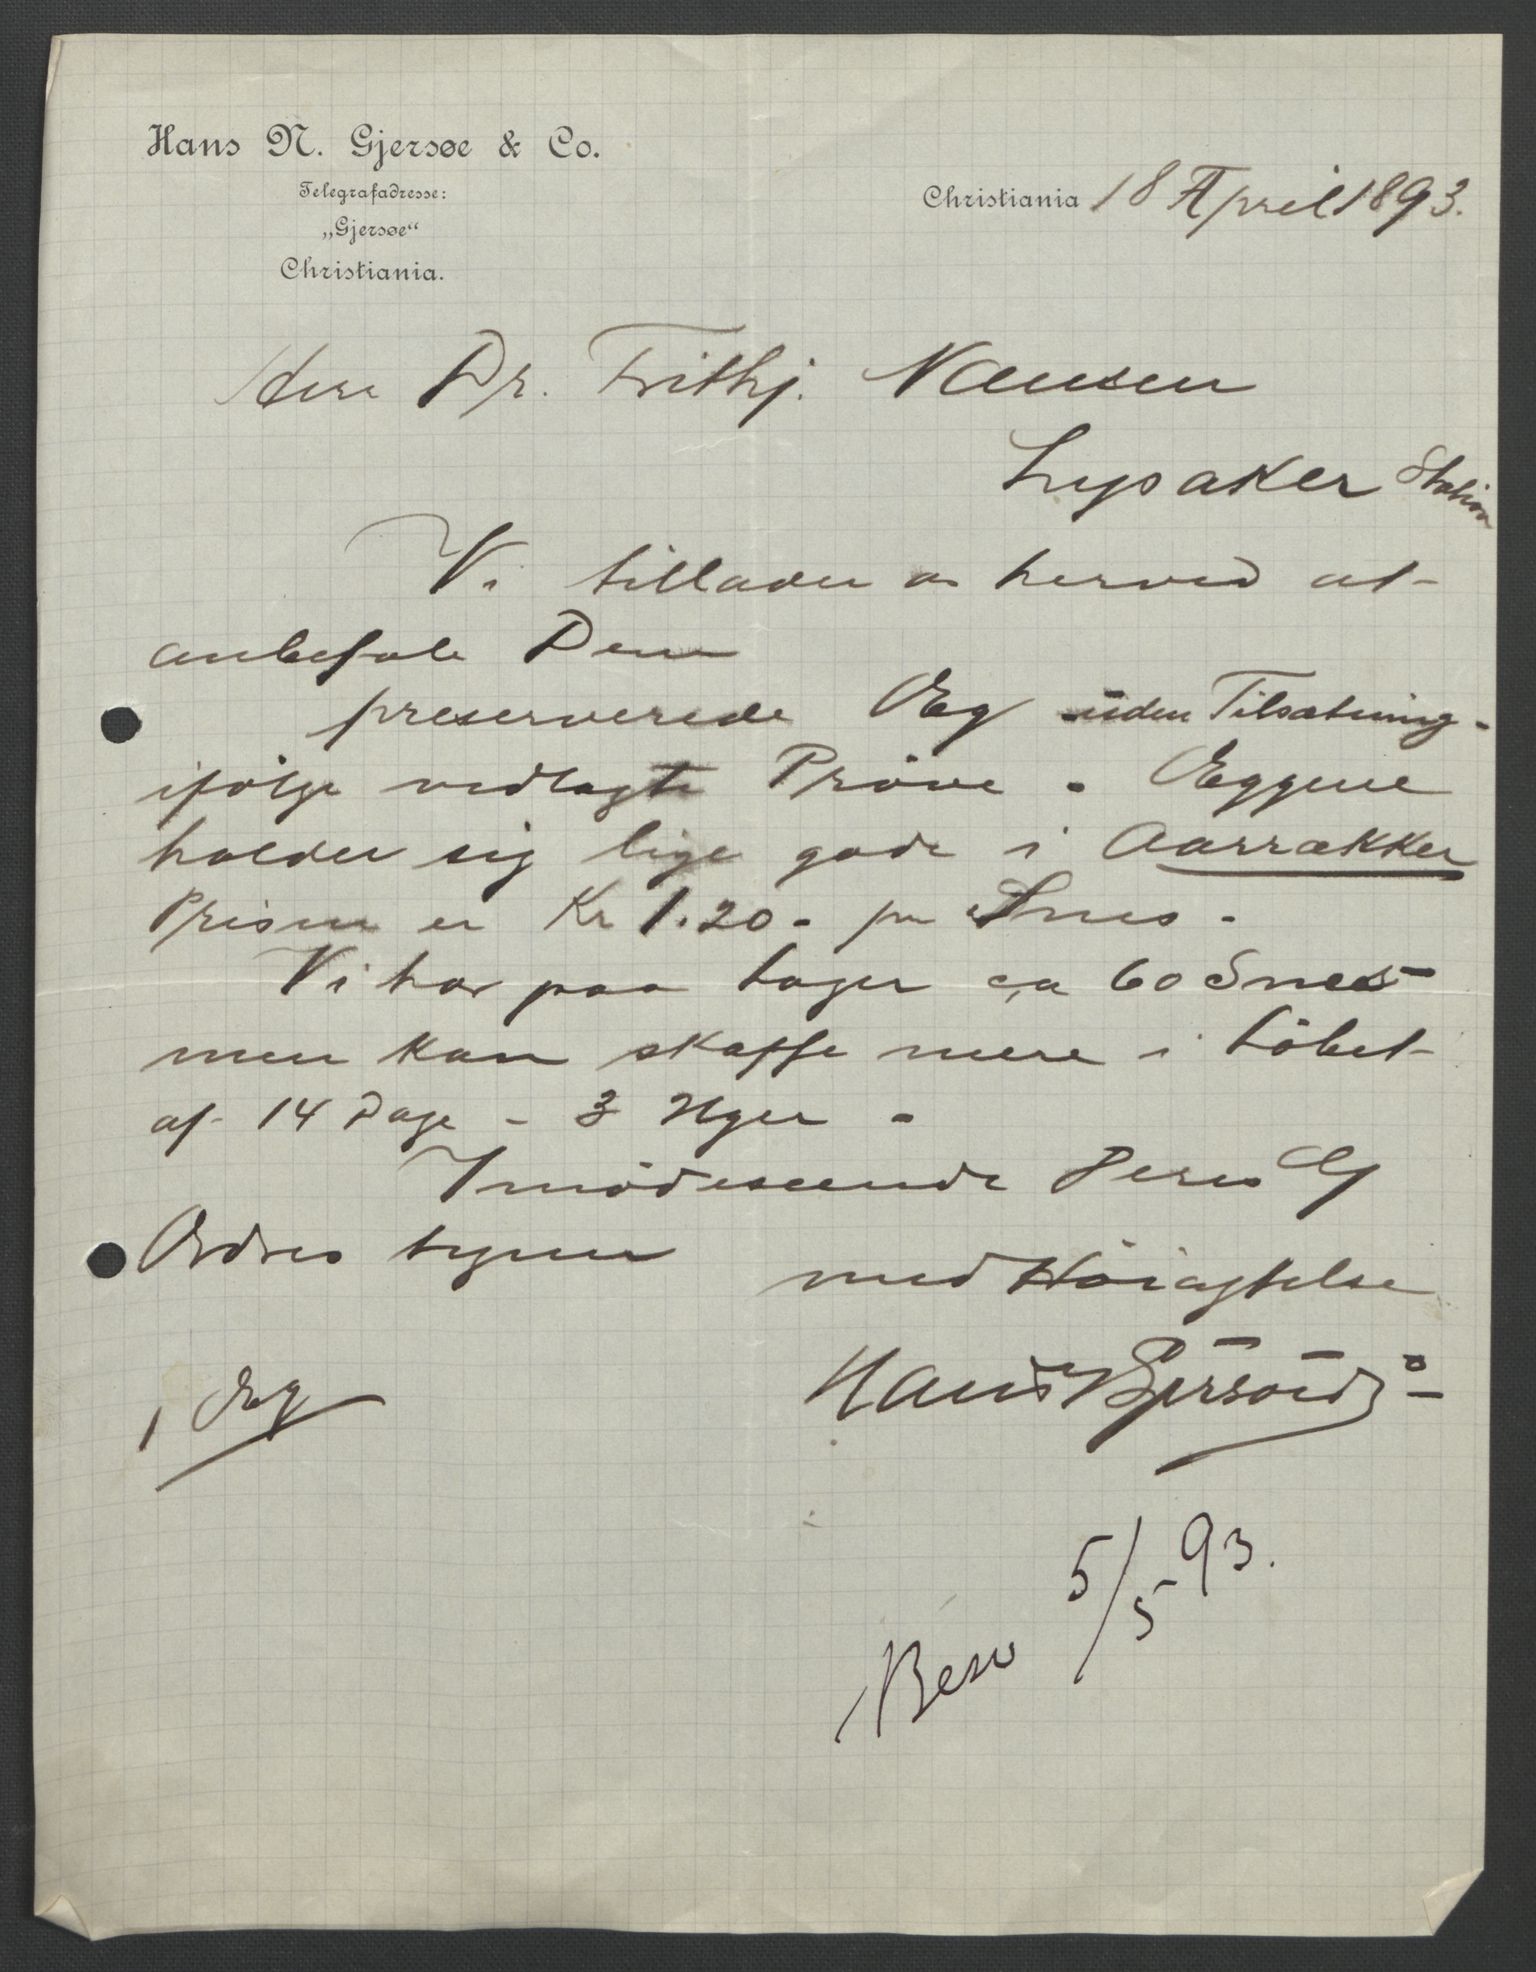 Hans N. Gjersøe & Co.
Telegrafadresse:
„Gjersøe“
Christiania.
Christiania 18 April 1893.
Herr Dr. Frithj. Nansen
Lysaker Station
Vi tillader os herved at
anbefale Dem
preserverede Æg uden Tilsætning -
ifölge vedlagte Pröve . Æggene
holder sig lige gode i Aarrækker
Prisen er Kr 1.20 - pr Snes -
Vi har paa Lager ca 60 Snes
men kan skaffe mere i Löbet
af 14 Dage - 3 Uger .
Imödeseende Deres
Ordres tegner
med Höiagtelse
Hans N Gjersöe & Co
1 Æg
Besv 5/5 93.